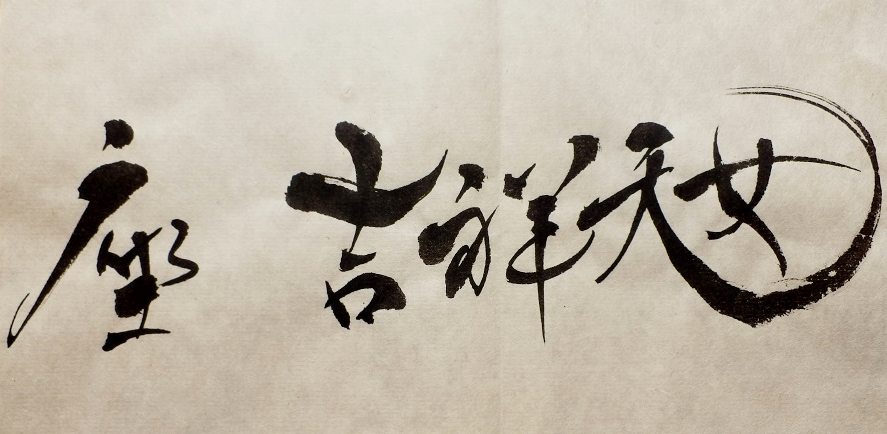 座 吉祥天女